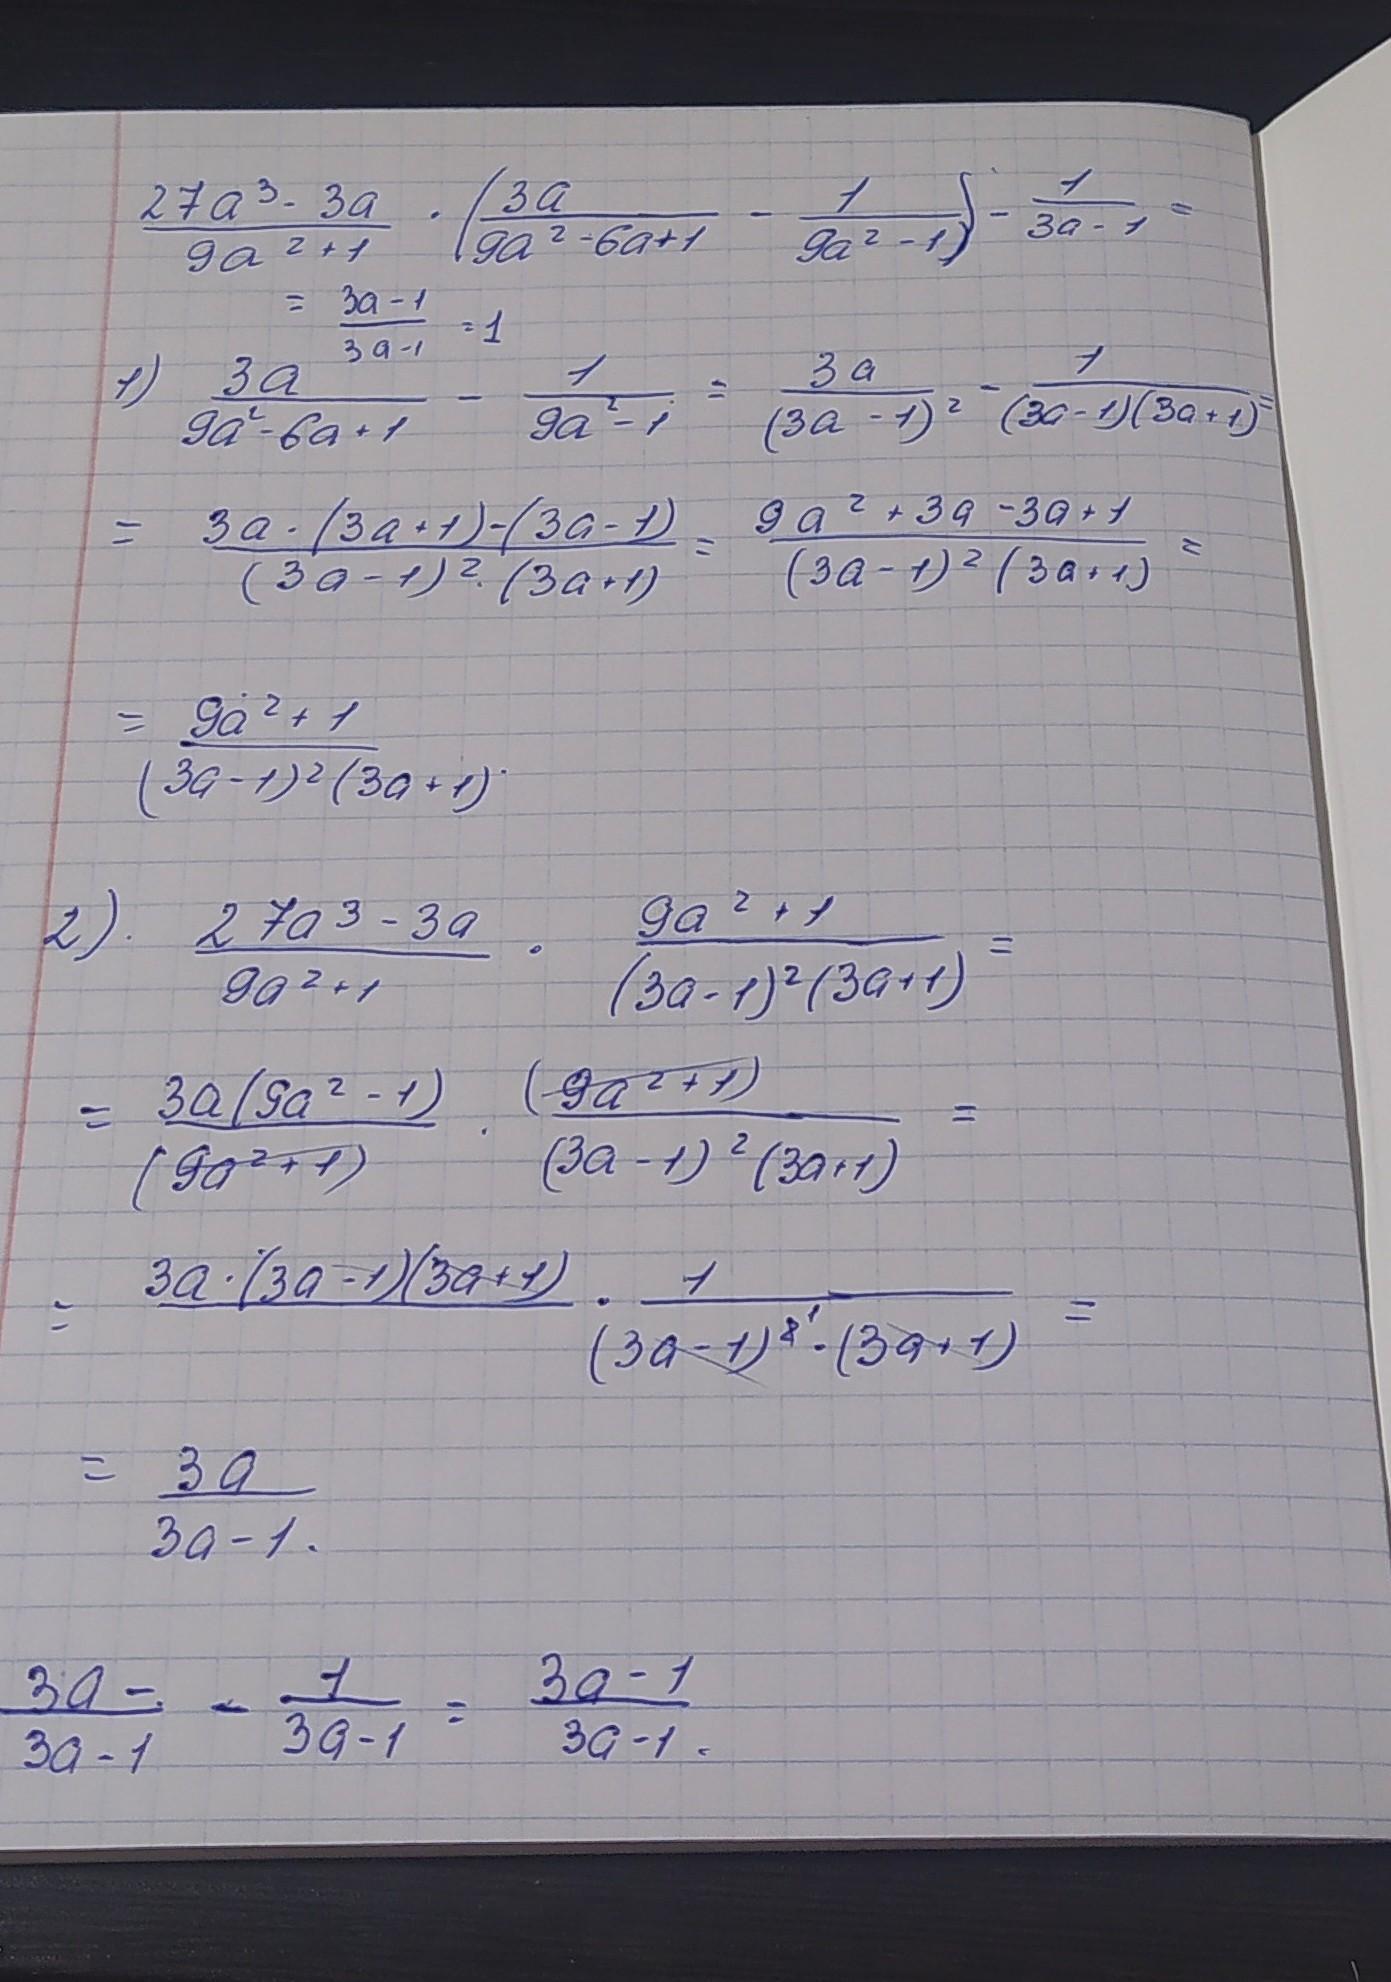 (27a³ - 3a)/(9a² + 1) · (3a/(9a² - 6a + 1) - 1/(9a² - 1)) - 1/(3a - 1) =
= (3a - 1)/(3a - 1) = 1
1) 3a/(9a² - 6a + 1) - 1/(9a² - 1) = 3a/(3a - 1)² - 1/((3a - 1)(3a + 1)) =
= (3a · (3a + 1) - (3a - 1))/((3a - 1)² · (3a + 1)) = (9a² + 3a - 3a + 1)/((3a - 1)² (3a + 1)) =
= (9a² + 1)/((3a - 1)² (3a + 1)).
2). (27a³ - 3a)/(9a² + 1) · (9a² + 1)/((3a - 1)² (3a + 1)) =
= 3a(9a² - 1)/(9a² + 1) · (9a² + 1)/((3a - 1)² (3a + 1)) =
= 3a · (3a - 1)(3a + 1) · 1/((3a - 1)² ¹ · (3a + 1)) =
= 3a/(3a - 1).
3a -/(3a - 1) - 1/(3a - 1) = (3a - 1)/(3a - 1).